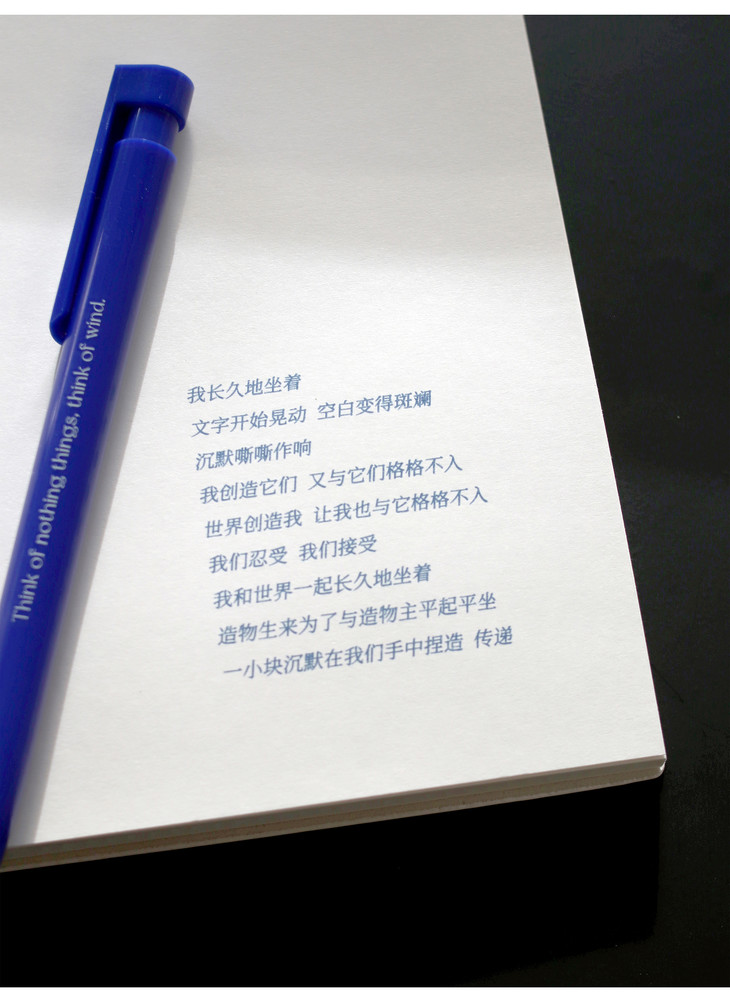 Think of nothing things, think of wind.
我长久地坐着
文字开始晃动 空白变得斑斓
沉默嘶嘶作响
我创造它们 又与它们格格不入
世界创造我 让我也与它格格不入
我们忍受 我们接受
我和世界一起长久地坐着
造物生来为了与造物主平起平坐
一小块沉默在我们手中捏造 传递